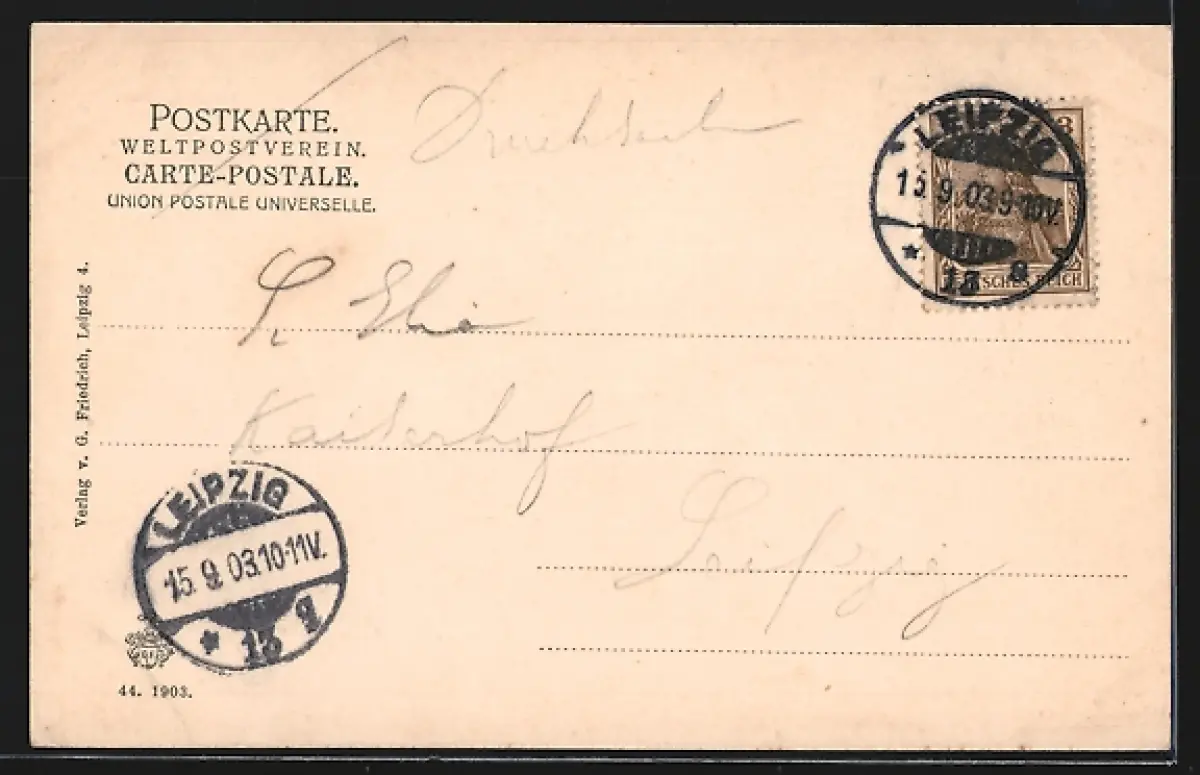 POSTKARTE.
WELTPOSTVEREIN.
CARTE-POSTALE.
UNION POSTALE UNIVERSELLE.
Drucksache
LEIPZIG
15.9.03.9-10V.
* 13
3
DEUTSCHES REICH
Kaiserhof
Leipzig
Verlag v. G. Friedrich, Leipzig 4.
LEIPZIG
15.9.03.10-11V.
* 13
44. 1903.